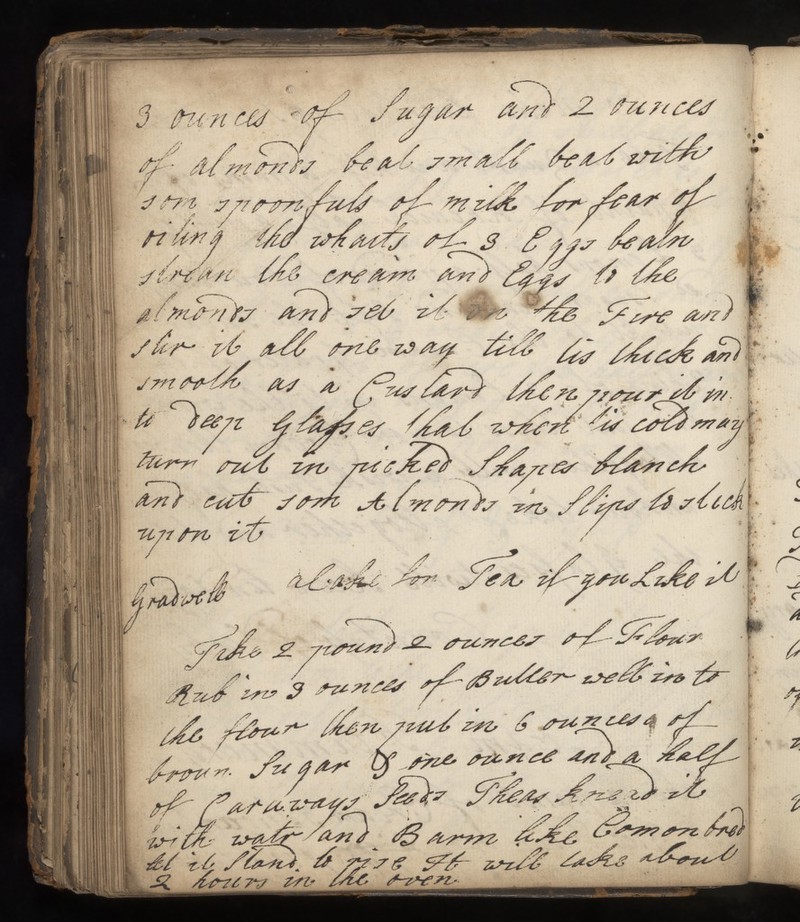 3 ounces of Sugar and 2 ounces
of almonds beat small beat with
som spoonfuls of milk for fear of
oiling the whaits of 3 Eggs beatn
strean the cream and Eggs to the
almonds and set it on the Fire and
stir it all one way till tis thick and
smooth as a Custard then pour it in
to deep Glasses that when tis cold may
turn out in picked Shapes blanch
and cut som Almonds in Slips to stick
upon it
Gradwell a Cake for Tea if you Like it
Take 2 pound 2 ounces of Flour
Rub in 3 ounces of Butter well in to
the flour then put in 6 ounces of
broun Sugar & one ounce and a half
of Caraways Seeds Theas knead it
with watr and Barm like Comon bred
let it Stand to rise It will take about
2 hours in the oven